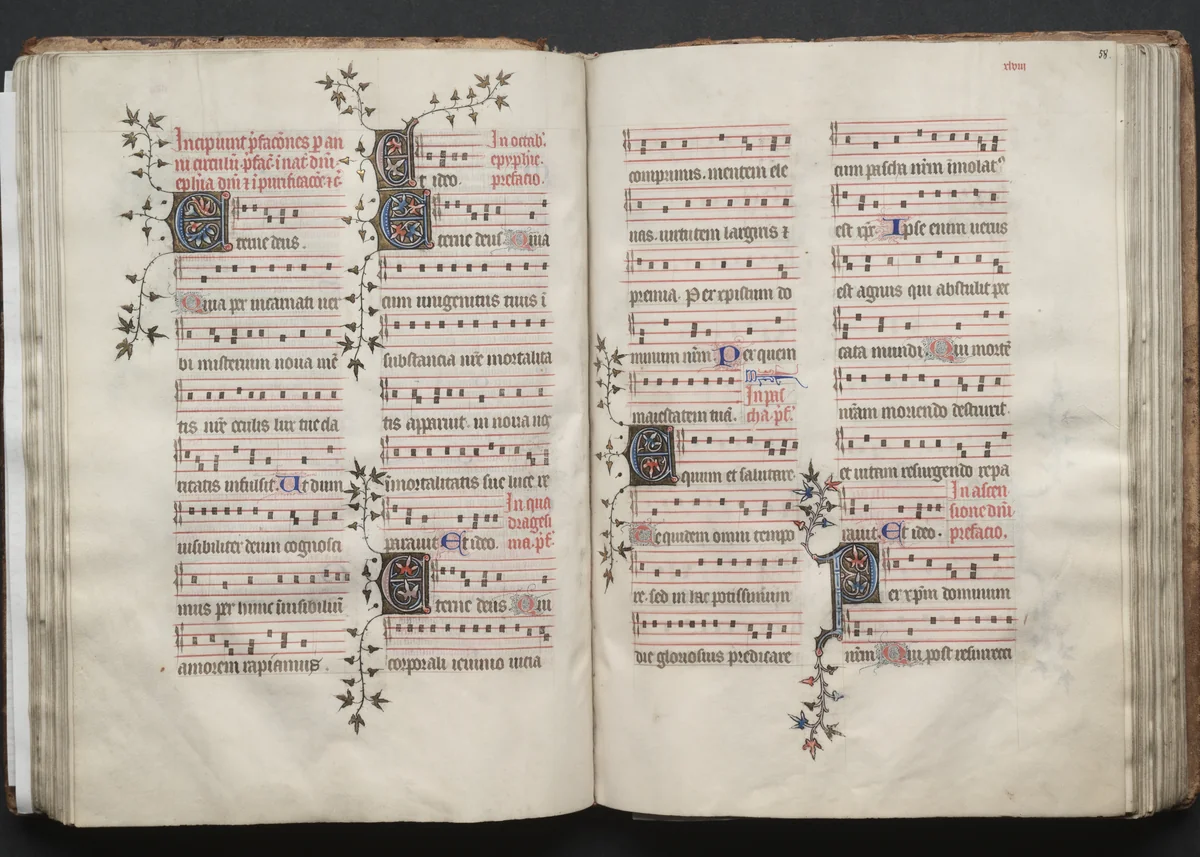 Incipiunt p̄facōnes p an
ni circulū. p̄fac̄ i nat̄ dn̄i.
ephīa dn̄i ⁊ i purificacōe ⁊c̄
Eterne deus.
Quia per incarnati uer
bi misterium noua mē
tis nr̄e oculis lux tue cla
ritatis infulsit. Ut dum
uisibiliter deum cognosci
mus per hunc inuisibiliū
amorem rapiamur.
Et ideo.
In octab̄.
epyphīe.
prefacio.
Eterne deus Quia
cum unigenitus tuus ī
substancia nr̄e mortalita
tis apparuit. in noua nos
īmortalitatis sue luce re
parauit Et ideo.
In qua
dragesi
ma. p̄f.
Eterne deus. Qui
corporali ieiunio uicia
xlviii
58.
comprimis. mentem ele
uas. uirtutem largiris ⁊
premia. Per xpistum do
minum nr̄m. Per quem
maiestatem tuā.
In pas
cha. p̄f.
Equum et salutare.
Te quidem omni tempo
re. sed in hac potissimum
die gloriosius predicare
cum pascha nr̄m īmolatꝰ
est xp̄c. Ipse enim uerus
est agnus qui abstulit pec
cata mundi. Qui mortē
nr̄am moriendo destruxit.
et uitam resurgendo repa
rauit. Et ideo.
In ascen
sione dn̄i
prefacio.
Per xp̄m dominum
nr̄m Qui post resurrecti